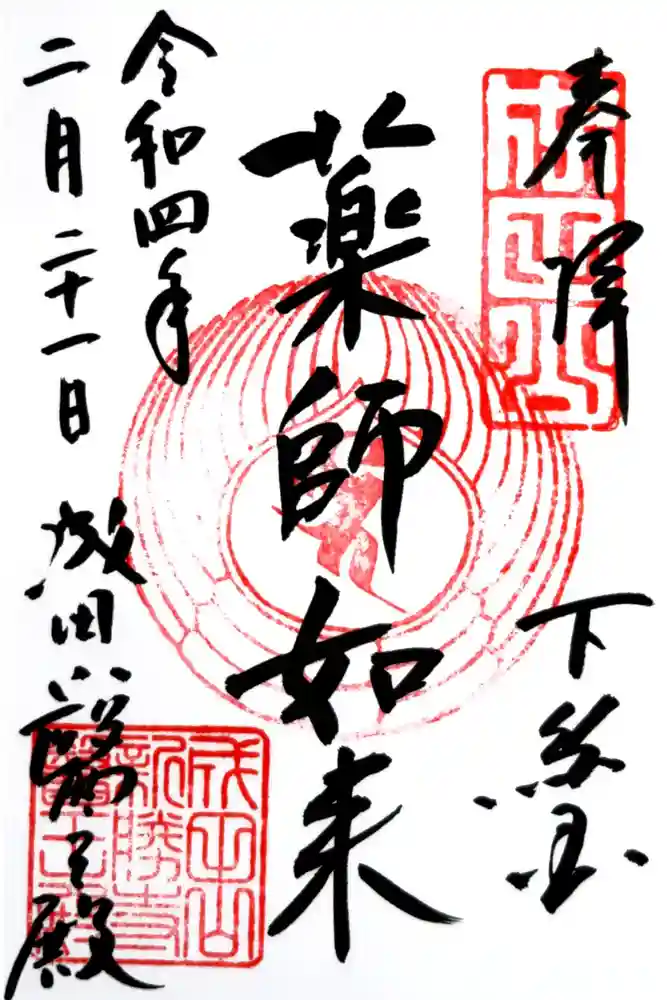 奉拝
下総国
薬師如来
令和四年
二月二十一日
成田山醫王殿
成田山
成田山
新勝寺
醫王殿